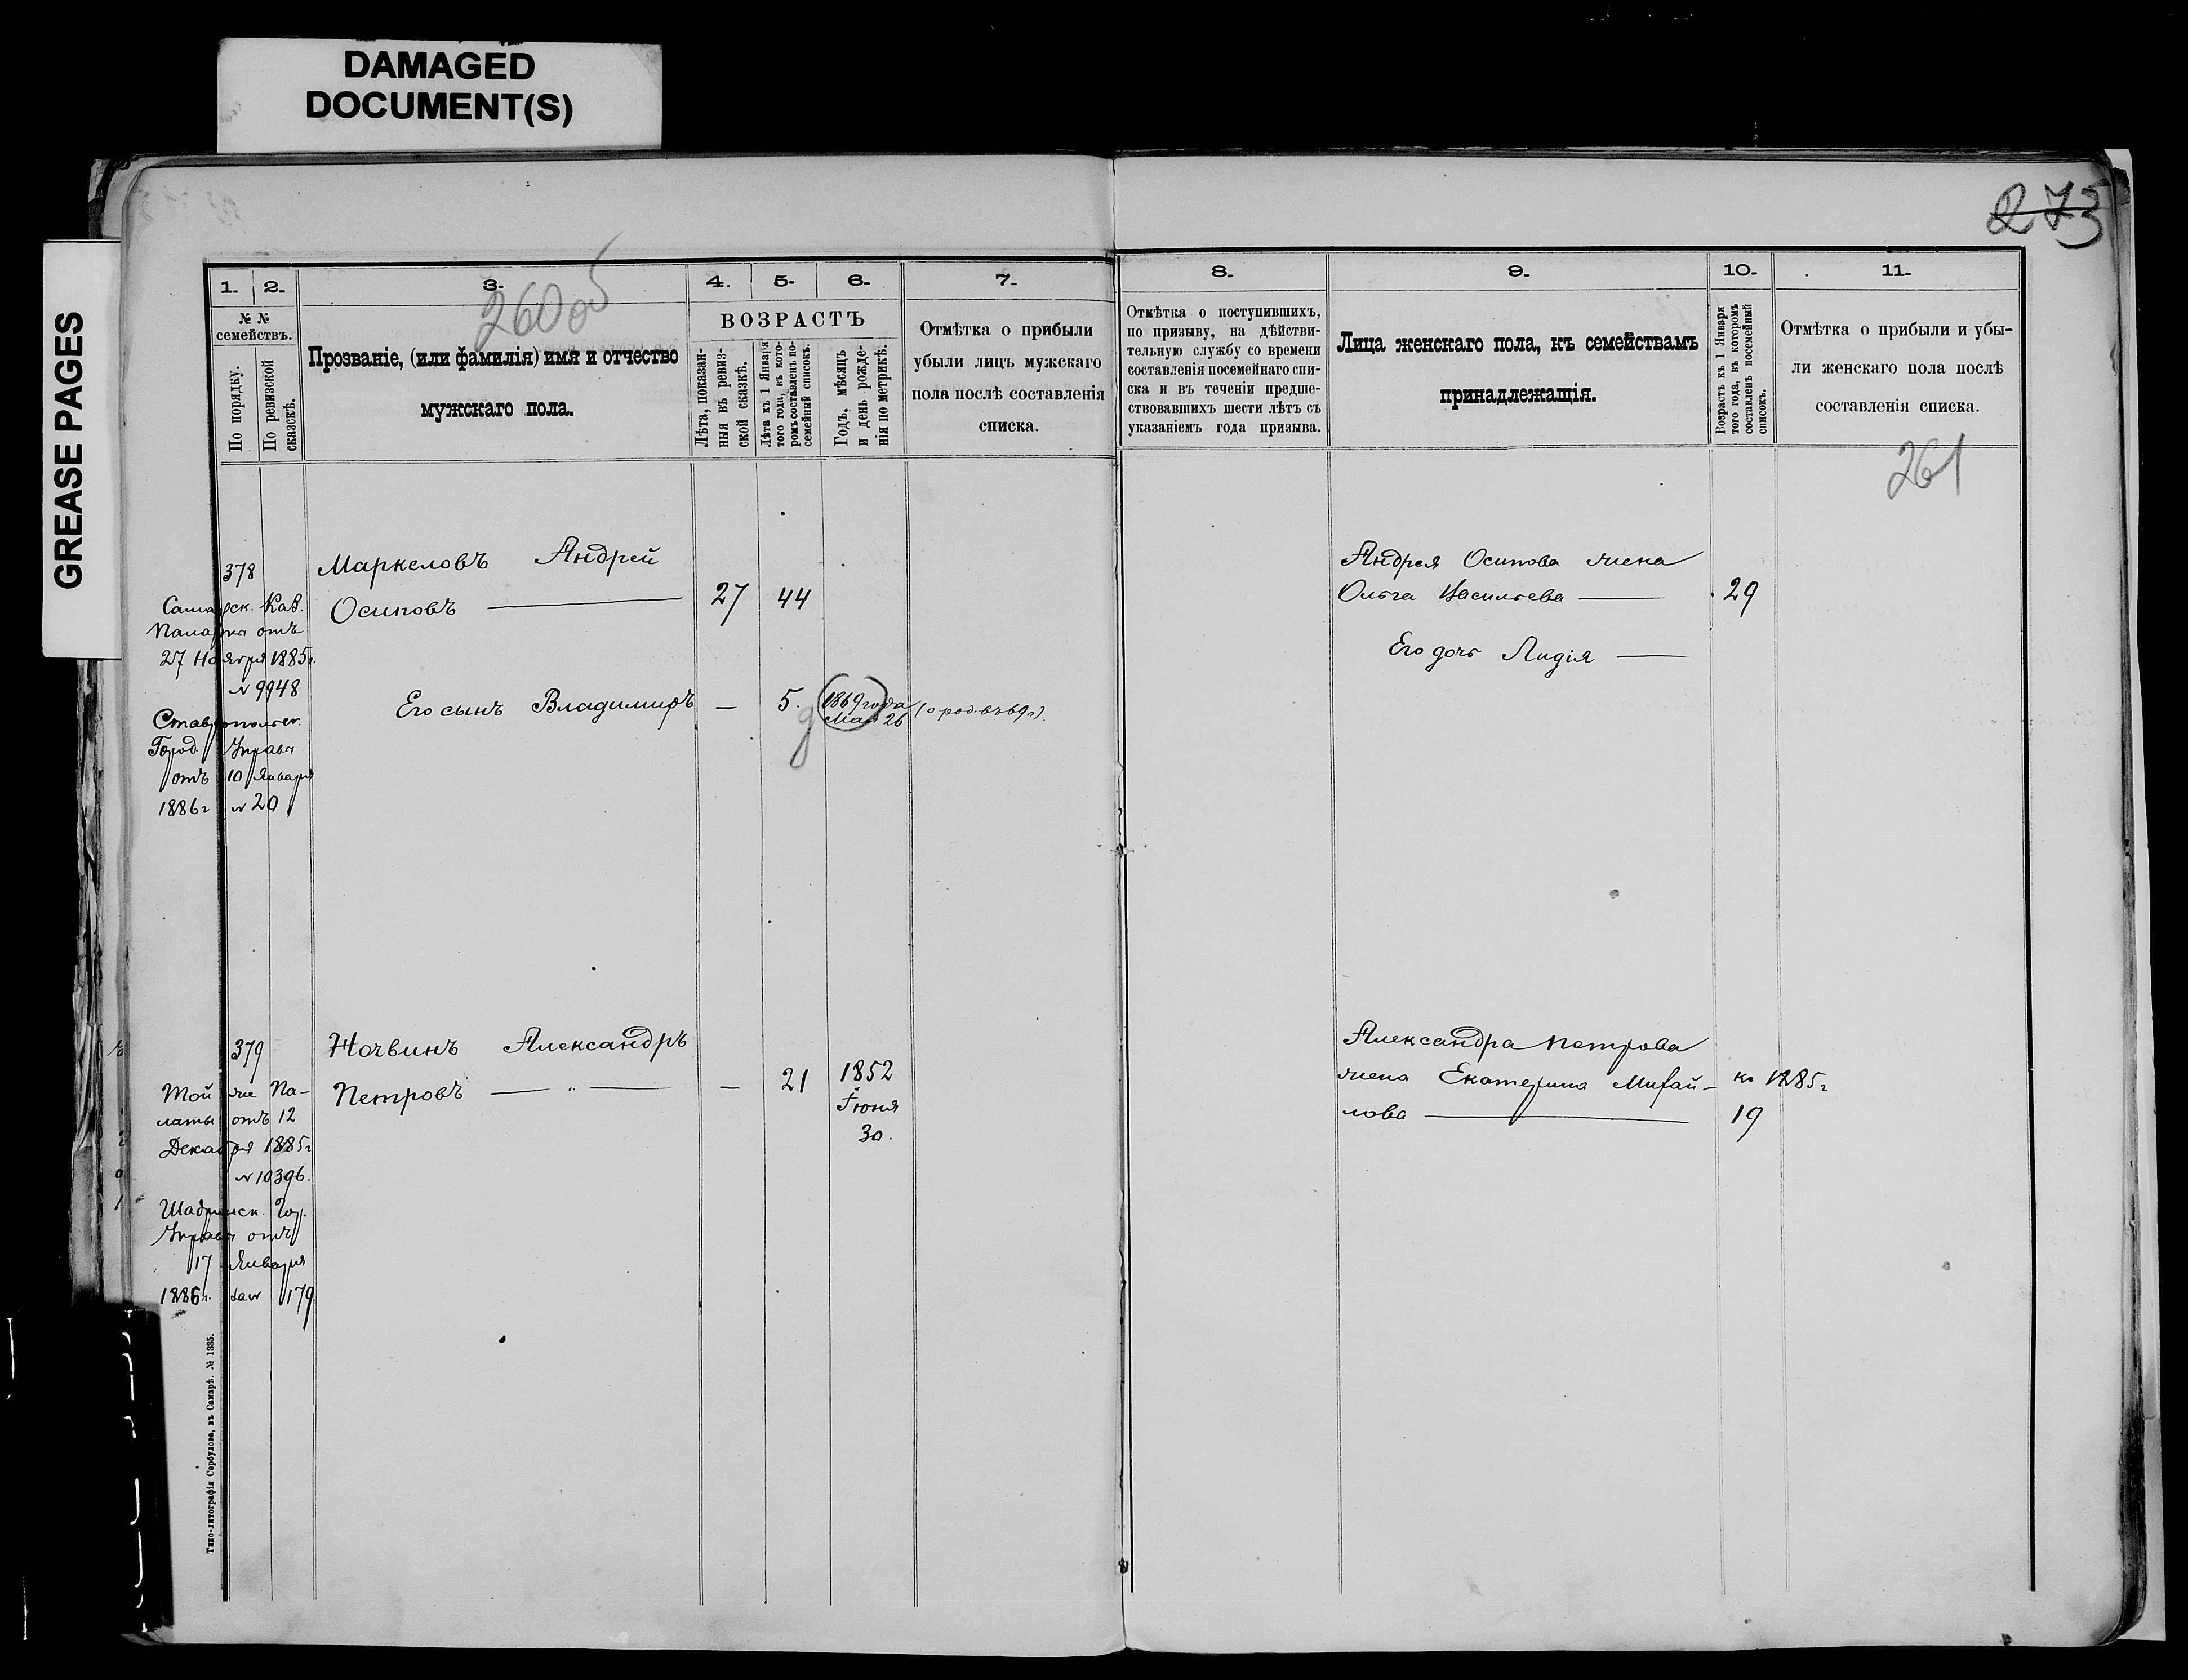 DAMAGED
DOCUMENT(S)
GREASE PAGES
273
260 об
261
1. 2. 3. 4. 5. 6. 7.
№ №
семействъ.
По порядку.
По ревизской
сказкѣ.
Прозваніе, (или фамилія) имя и отчество
мужскаго пола.
ВОЗРАСТЪ
Лѣта, показан-
ныя въ ревиз-
ской сказкѣ.
Лѣта къ 1 Января
того года, въ кото-
ромъ составленъ по-
семейный списокъ.
Годъ, мѣсяцъ
и день рожде-
нія по метрикѣ.
Отмѣтка о прибыли
убыли лицъ мужскаго
пола послѣ составленія
списка.
8. 9. 10. 11.
Отмѣтка о поступившихъ,
по призыву, на дѣйстви-
тельную службу со времени
составленія посемейнаго спи-
ска и въ теченіи предше-
ствовавшихъ шести лѣтъ съ
указаніемъ года призыва.
Лица женскаго пола, къ семействамъ
принадлежащія.
Возрастъ къ 1 Января
того года, въ которомъ
составленъ посемейный
списокъ.
Отмѣтка о прибыли и убы-
ли женскаго пола послѣ
составленія списка.
378
Самарск. Каз.
Палаты отъ
27 Ноября 1885г.
№ 9948
Ставропольск.
Город Управы
отъ 10 Января
1886г № 20
Маркеловъ Андрей
Осиповъ — 27 44
Его сынъ Владимиръ — 5. 1869 года
Мая 26 (о род. въ 69 г).
9
Андрея Осипова жена
Ольга Васильева — 29
Его дочь Лидія —
379
Той же Па-
латы отъ 12
Декабря 1885г
№ 10396.
Шадринск. Гор.
Управы отъ
17 Января
1886г. за № 179
Ночвинъ Александръ
Петровъ — „ — — 21 1852
Іюня
30.
Александра Петрова
жена Екатерина Михай-
лова —
къ 1885г
19
Типо-литографія Сербулова, въ Самарѣ. № 1335.